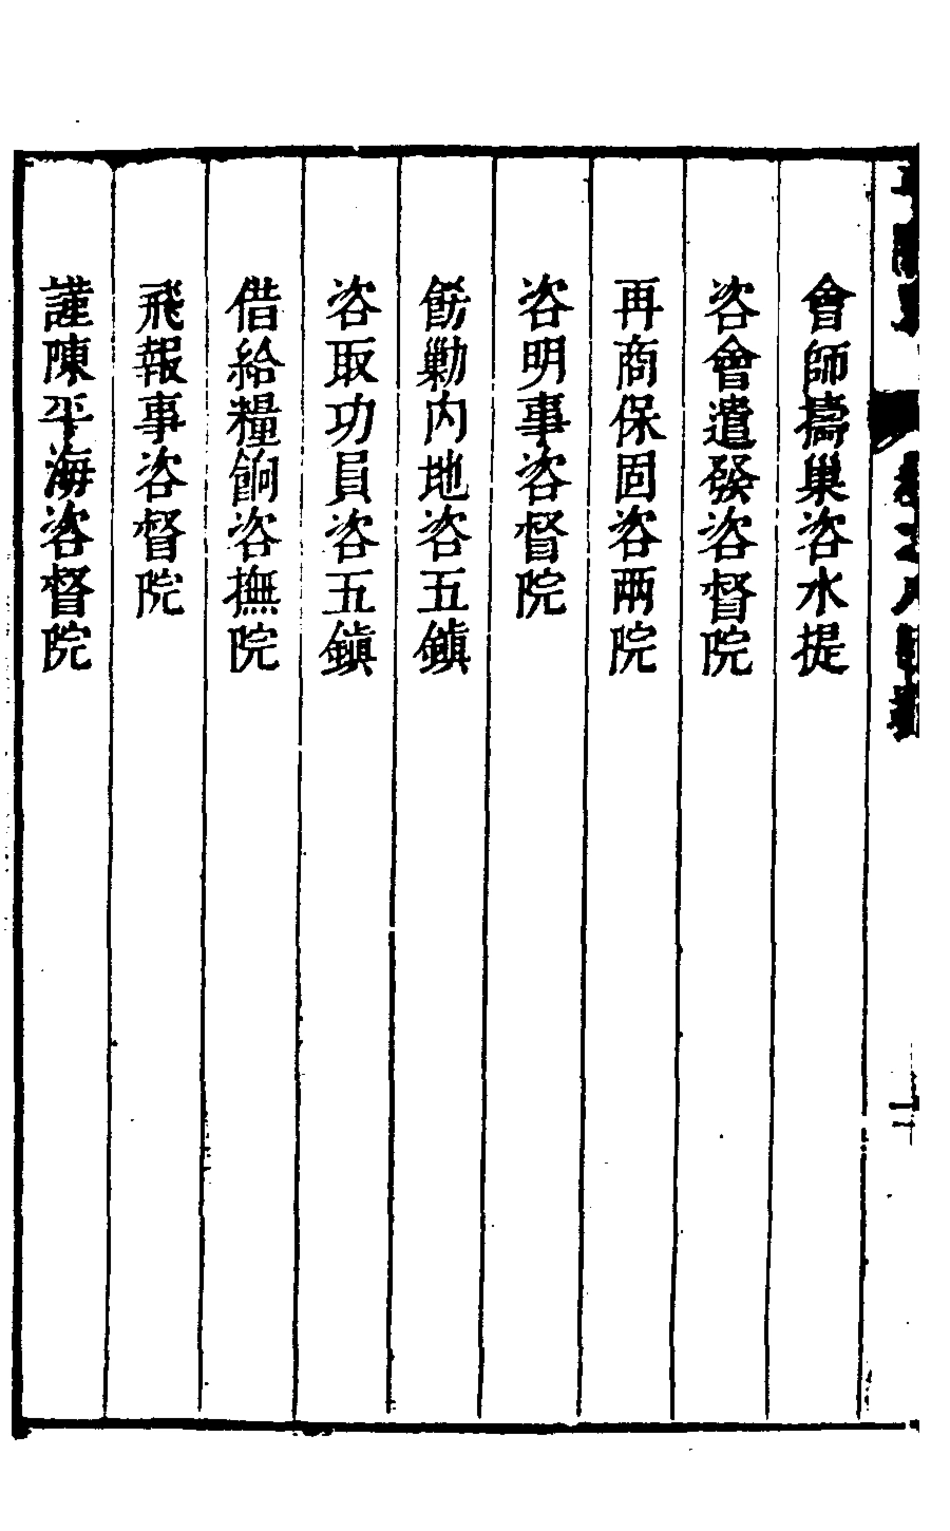 會師擣巢咨水提
咨會遣發咨督院
再商保固咨兩院
咨明事咨督院
飭勦内地咨五鎮
咨取功員咨五鎮
借給糧餉咨撫院
飛報事咨督院
謹陳平海咨督院